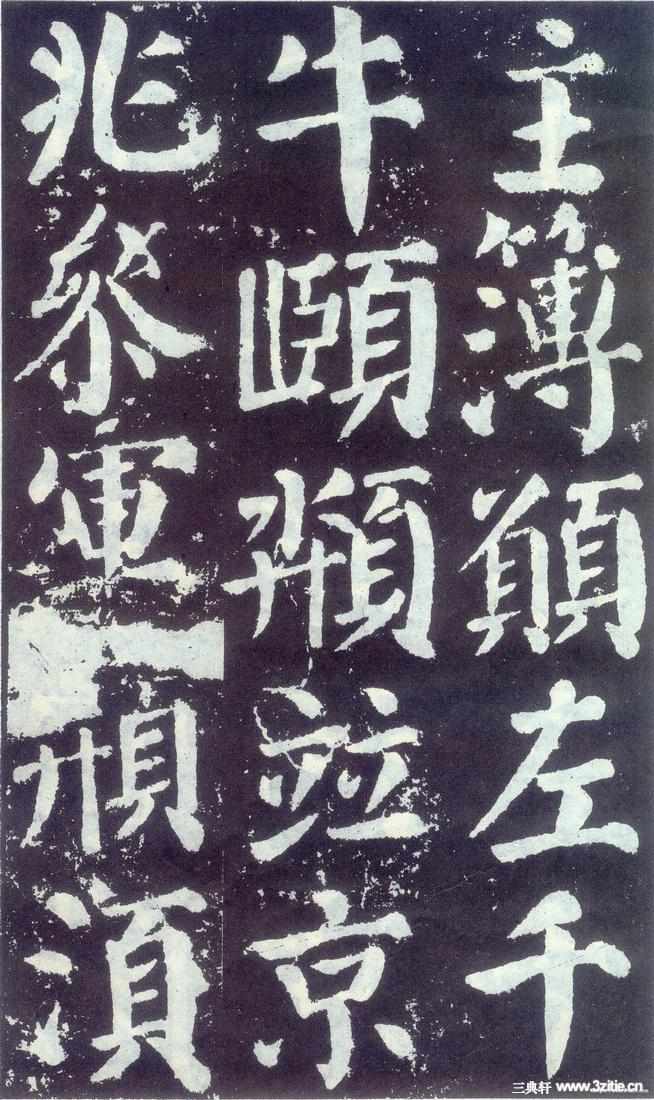 主簿顛左千
牛頤頩竝京
兆參軍湏
三典轩 www.3zitie.cn